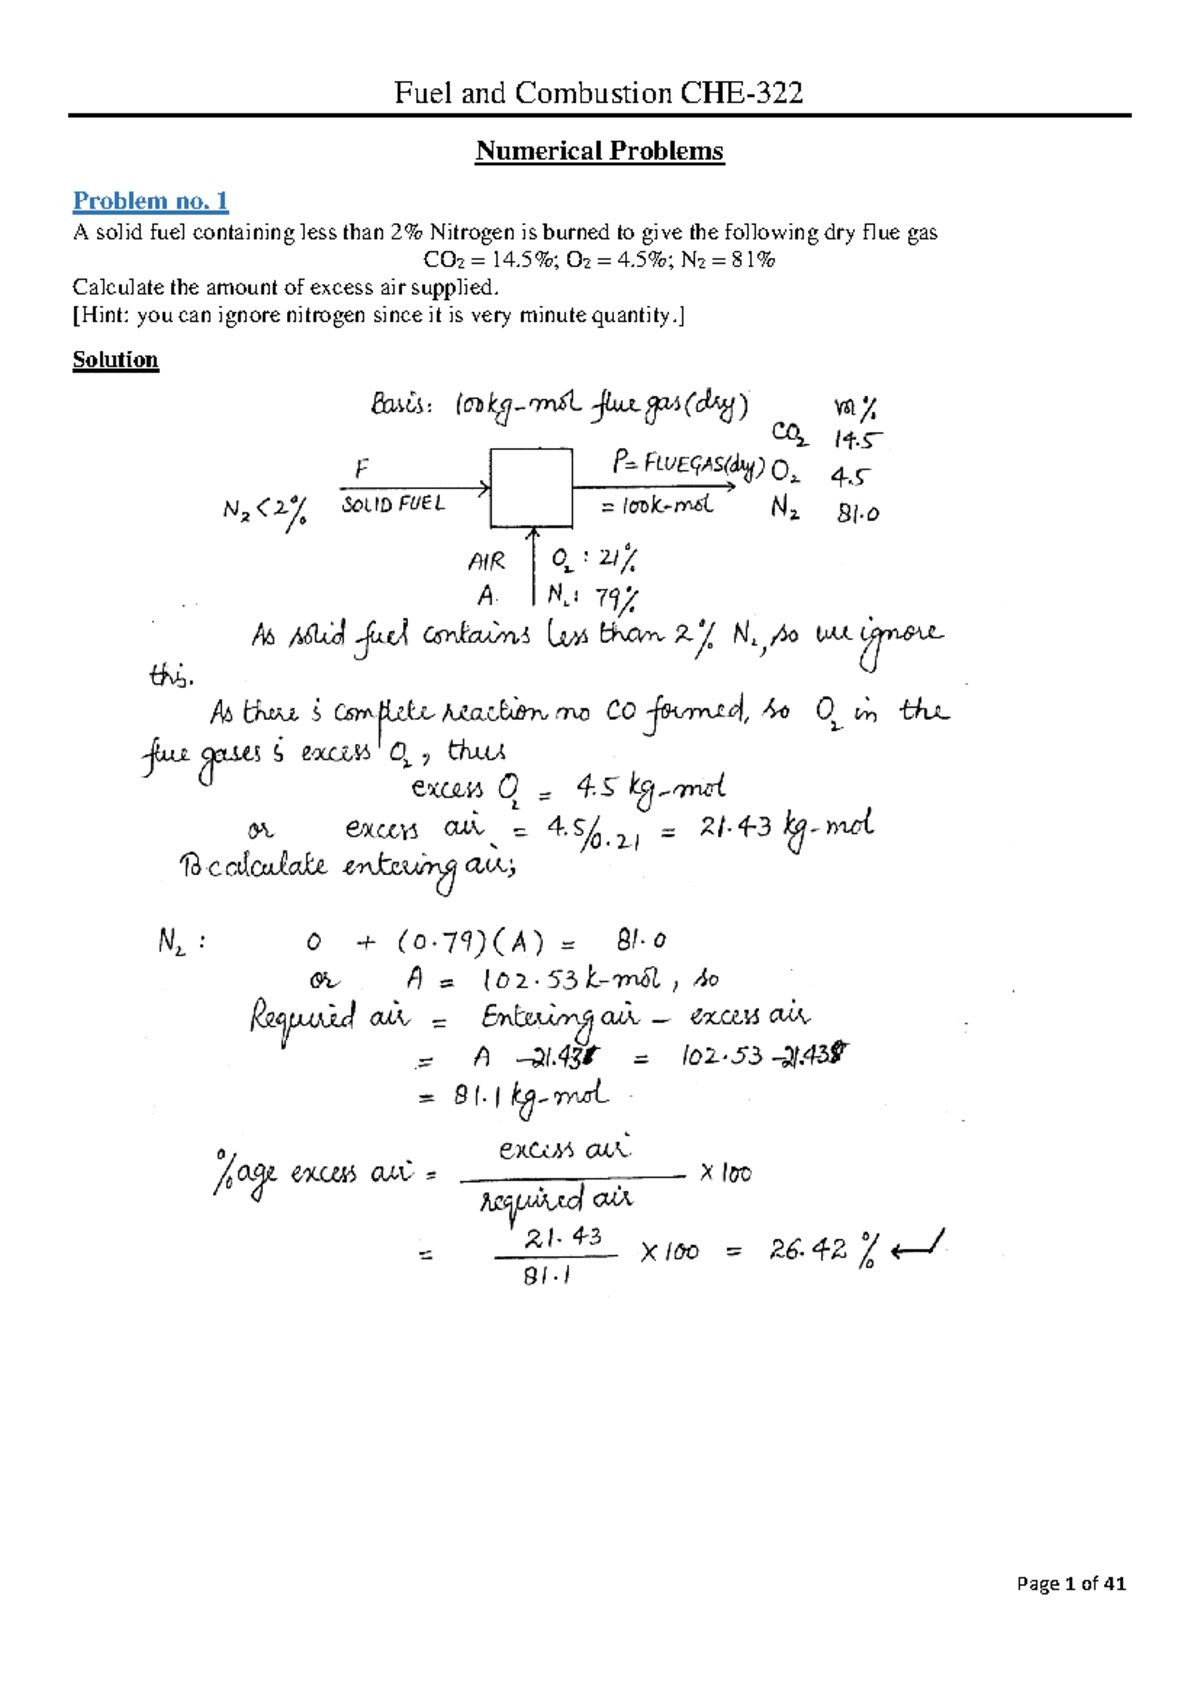 Fuel and Combustion CHE-322
Numerical Problems
Problem no. 1
A solid fuel containing less than 2% Nitrogen is burned to give the following dry flue gas
CO₂ = 14.5%; O₂ = 4.5%; N₂ = 81%
Calculate the amount of excess air supplied.
[Hint: you can ignore nitrogen since it is very minute quantity.]
Solution
Basis: 100kg-mol flue gas (dry)
vol %
CO₂ 14.5
F
P = FLUEGAS(dry) O₂ 4.5
N₂ < 2% SOLID FUEL
= 100k-mol N₂ 81.0
AIR O₂ : 21%
A. N₂ : 79%
As solid fuel contains less than 2% N₂, so we ignore
this.
As there is complete reaction no CO formed, so O₂ in the
flue gases is excess O₂, thus
excess O₂ = 4.5 kg-mol
or excess air = 4.5/0.21 = 21.43 kg-mol
To calculate entering air;
N₂ : 0 + (0.79)(A) = 81.0
or A = 102.53 k-mol, so
Required air = Entering air - excess air
= A - 21.43 = 102.53 - 21.43
= 81.1 kg-mol
%age excess air = excess air / required air × 100
= 21.43 / 81.1 × 100 = 26.42 %
Page 1 of 41